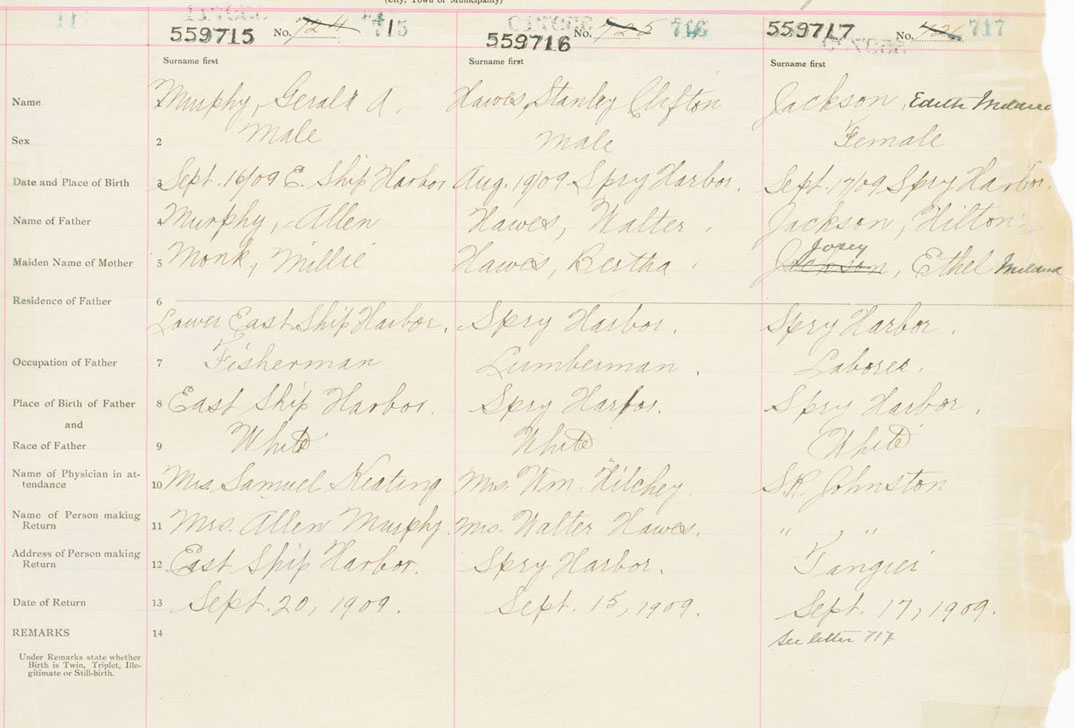 (City, Town or Municipality)
559715 No. 724 715
559716 No. 725 716
559717 No. 726 717
Surname first Surname first Surname first
Name Murphy, Gerald A. Hawes, Stanley Clifton Jackson, Edith Mildred
Sex 2 Male Male Female
Date and Place of Birth 3 Sept. 16/09 E. Ship Harbor Aug. 19/09 Spry Harbor. Sept. 17/09 Spry Harbor.
Name of Father 4 Murphy, Allen Hawes, Walter. Jackson, Hilton
Maiden Name of Mother 5 Monk, Millie Hawes, Bertha. Jackson Josey, Ethel
Residence of Father 6 Lower East Ship Harbor. Spry Harbor. Spry Harbor.
Occupation of Father 7 Fisherman Lumberman. Laborer.
Place of Birth of Father 8 East Ship Harbor. Spry Harbor. Spry Harbor.
and
Race of Father 9 White White White
Name of Physician in at-
tendance 10 Mrs Samuel Keating Mrs. Wm. Hilchey. S.R. Johnston
Name of Person making
Return 11 Mrs. Allen Murphy. Mrs. Walter Hawes. " "
Address of Person making
Return 12 East Ship Harbor. Spry Harbor. Tangier
Date of Return 13 Sept. 20, 1909. Sept. 15, 1909. Sept. 17, 1909.
REMARKS 14 See letter 717
Under Remarks state whether
Birth is Twin, Triplet, Ille-
gitimate or Still-birth.